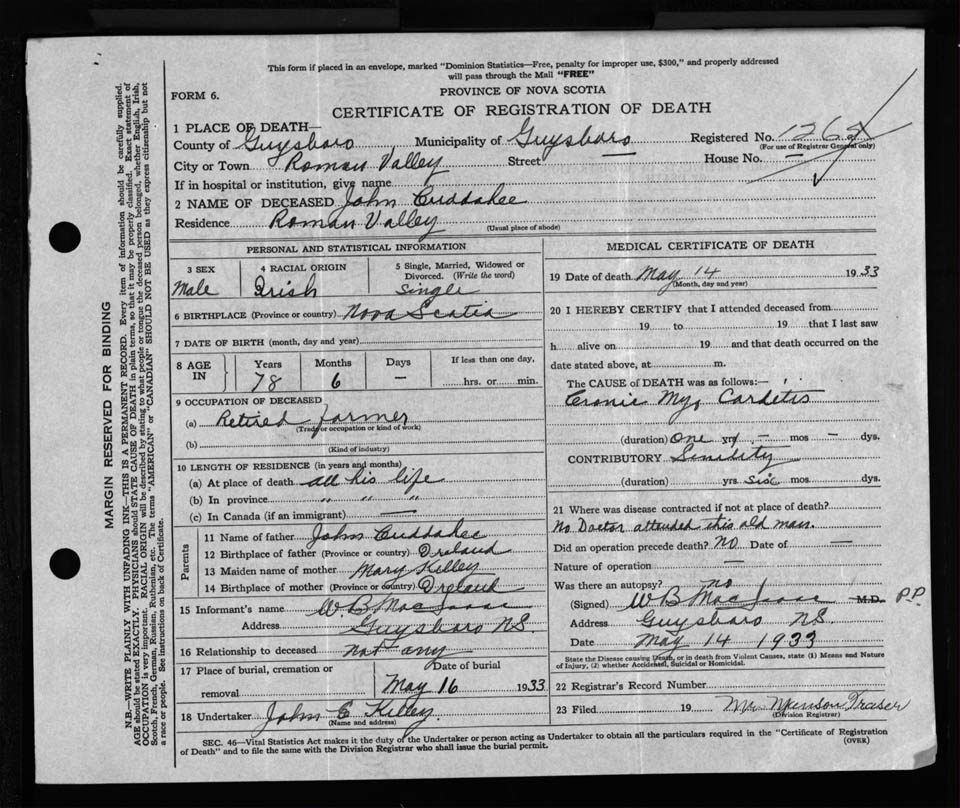 This form if placed in an envelope, marked "Dominion Statistics—Free, penalty for improper use, $300," and properly addressed
will pass through the Mail "FREE"
FORM 6.
PROVINCE OF NOVA SCOTIA
CERTIFICATE OF REGISTRATION OF DEATH
1 PLACE OF DEATH—
County of Guysboro Municipality of Guysboro Registered No. 1268
(For use of Registrar General only)
City or Town Roman Valley Street — House No. —
If in hospital or institution, give name
2 NAME OF DECEASED John Cuddahee
Residence Roman Valley
(Usual place of abode)
PERSONAL AND STATISTICAL INFORMATION
3 SEX 4 RACIAL ORIGIN 5 Single, Married, Widowed or
Divorced. (Write the word)
Male Irish Single
6 BIRTHPLACE (Province or country) Nova Scotia
7 DATE OF BIRTH (month, day and year)
8 AGE IN Years Months Days If less than one day,
78 6 — hrs. or min.
9 OCCUPATION OF DECEASED
(a) Retired farmer
(Trade or occupation or kind of work)
(b)
(Kind of industry)
10 LENGTH OF RESIDENCE (in years and months)
(a) At place of death all his life
(b) In province " " "
(c) In Canada (if an immigrant) —
Parents
11 Name of father John Cuddahee
12 Birthplace of father (Province or country) Ireland
13 Maiden name of mother Mary Kelley
14 Birthplace of mother (Province or country) Ireland
15 Informant's name W. B. MacIsaac
Address Guysboro N.S.
16 Relationship to deceased not any
17 Place of burial, cremation or removal Date of burial
May 16 1933
18 Undertaker John E Kelley
(Name and address)
MEDICAL CERTIFICATE OF DEATH
19 Date of death May 14 1933
(Month, day and year)
20 I HEREBY CERTIFY that I attended deceased from
19 to 19 that I last saw
h alive on 19 and that death occurred on the
date stated above, at m.
The CAUSE of DEATH was as follows:—
Cronic Myo Carditis
(duration) One yrs. — mos — dys.
CONTRIBUTORY Senility
(duration) yrs six mos dys.
21 Where was disease contracted if not at place of death?
No Doctor attended this old man.
Did an operation precede death? NO Date of —
Nature of operation —
Was there an autopsy? no
(Signed) W B MacIsaac M.D. P.P.
Address Guysboro N.S.
Date May 14 1933
State the Disease causing Death, or in death from Violent Causes, state (1) Means and Nature
of Injury, (2) whether Accidental, Suicidal or Homicidal.
22 Registrar's Record Number
23 Filed 19 Fraser
(Division Registrar)
SEC. 46—Vital Statistics Act makes it the duty of the Undertaker or person acting as Undertaker to obtain all the particulars required in the "Certificate of Registration
of Death" and to file the same with the Division Registrar who shall issue the burial permit.
(OVER)
MARGIN RESERVED FOR BINDING
N.B.—WRITE PLAINLY WITH UNFADING INK—THIS IS A PERMANENT RECORD. Every item of information should be carefully supplied.
AGE should be stated EXACTLY. PHYSICIANS should STATE CAUSE OF DEATH in plain terms, so that it may be properly classified. Exact statement of
OCCUPATION is very important. RACIAL ORIGIN will be described by stating to what people or tongue the deceased person belonged, whether English, Irish,
Scotch, French, German, Russian, Ruthenian, etc. The terms "AMERICAN" or "CANADIAN" SHOULD NOT BE USED as they express citizenship but not
a race or people. See instructions on back of Certificate.